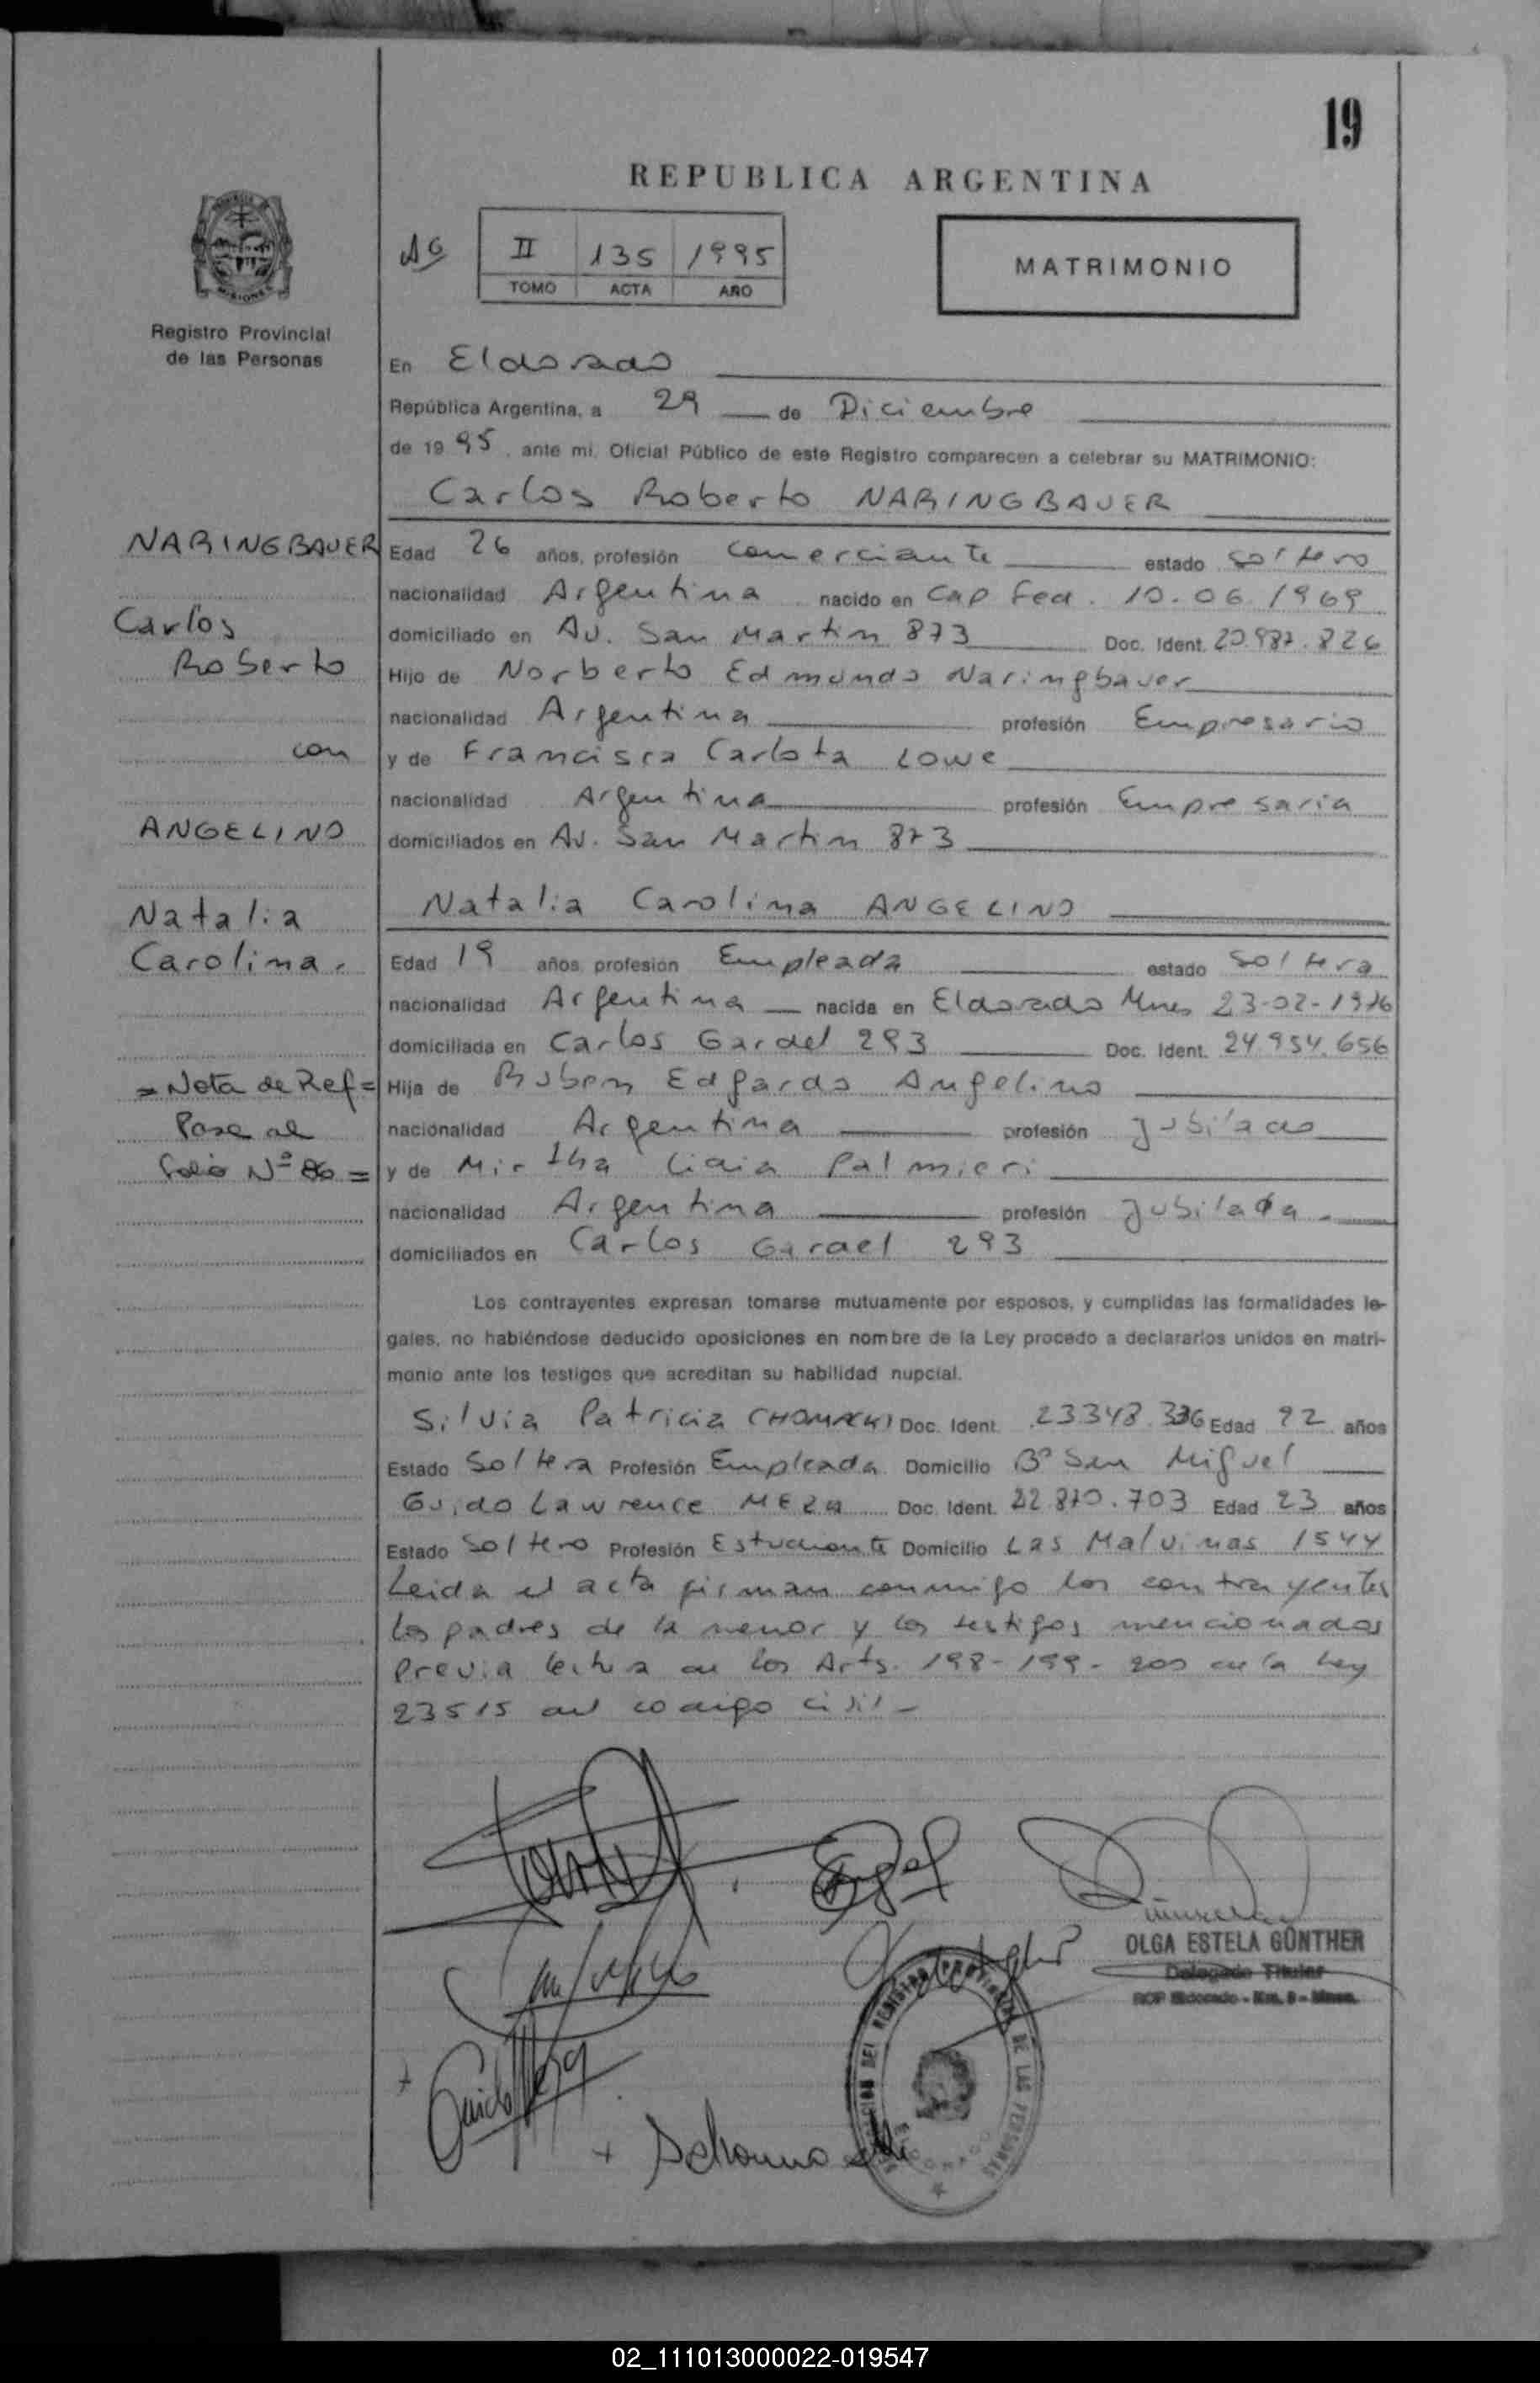 19
REPUBLICA ARGENTINA
II 135 1995
TOMO ACTA AÑO
MATRIMONIO
Registro Provincial
de las Personas
En Eldorado
República Argentina, a 29 de Diciembre
de 1995, ante mí, Oficial Público de este Registro comparecen a celebrar su MATRIMONIO:
Carlos Roberto NARINGBAUER
NARINGBAUER
Carlos
Roberto
con
ANGELINO
Natalia
Carolina.
= Nota de Ref =
Pase al
Folio Nº 86 =
Edad 26 años, profesión Comerciante estado soltero
nacionalidad Argentina nacido en Cap Fed. 10.06.1969
domiciliado en Av. San Martin 873 Doc. Ident. 20.987.826
Hijo de Norberto Edmundo Naringbauer
nacionalidad Argentina profesión Empresario
y de Francisca Carlota Lowe
nacionalidad Argentina profesión Empresaria
domiciliados en Av. San Martin 873
Natalia Carolina ANGELINO
Edad 19 años profesión Empleada estado Soltera
nacionalidad Argentina nacida en Eldorado Mnes 23-02-1976
domiciliada en Carlos Gardel 293 Doc. Ident. 24.954.656
Hija de Ruben Edgardo Angelino
nacionalidad Argentina profesión Jubilado
y de Mirtha Lidia Palmieri
nacionalidad Argentina profesión Jubilada.
domiciliados en Carlos Gardel 293
Los contrayentes expresan tomarse mutuamente por esposos, y cumplidas las formalidades le-
gales, no habiéndose deducido oposiciones en nombre de la Ley procedo a declararlos unidos en matri-
monio ante los testigos que acreditan su habilidad nupcial.
Silvia Patricia Doc. Ident. 23348.336 Edad 22 años
Estado Soltera Profesión Empleada Domicilio Bº San Miguel
Guido Lawrence MEZA Doc. Ident. 22.870.703 Edad 23 años
Estado Soltero Profesión Estudiante Domicilio Las Malvinas 1544
Leida el acta firman conmigo los contrayentes
los padres de la menor y los testigos mencionados
Previa lectura de los Arts. 198-199-200 de la Ley
23515 del codigo civil-
OLGA ESTELA GÜNTHER
Delegado Titular
RCP Eldorado - Km. 9 - Mnes.
DEL REGISTRO PROVINCIAL DE LAS PERSONAS
02_111013000022-019547